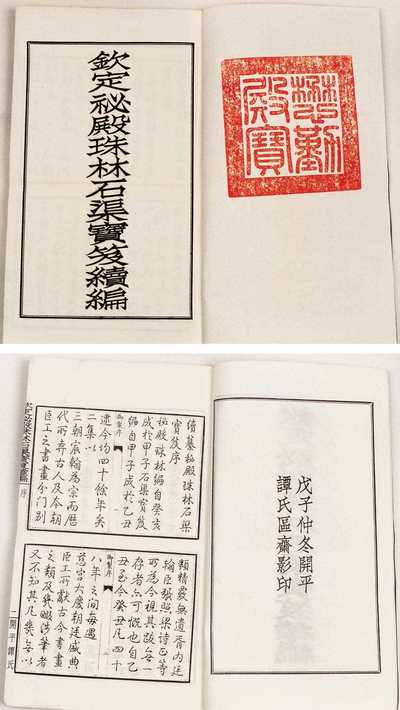 欽定祕殿珠林石渠寶笈續編
懋勤
殿寶
戊子仲冬開平
譚氏區齋影印
續纂祕殿珠林石渠
寶笈序
祕殿珠林編自癸亥
成於甲子石渠寶笈
編自甲子成於乙丑
御製序
逮今均四十餘年矣
二集以
三朝宸翰為宗而歷
代所弆古人及今朝
臣工之書畫分門別
類精嚴無遺胥内廷
翰臣張照梁詩正等
所為今視其跋無一
存者亦可慨也自乙
丑至今癸丑凡四十
御製序
八年之間每遇
慈宮大慶朝廷盛典
臣工所獻古今書畫
之類及幾暇涉筆者
又不知其凡幾無以
欽定祕殿珠林石渠寶笈續編
序
二開平譚氏